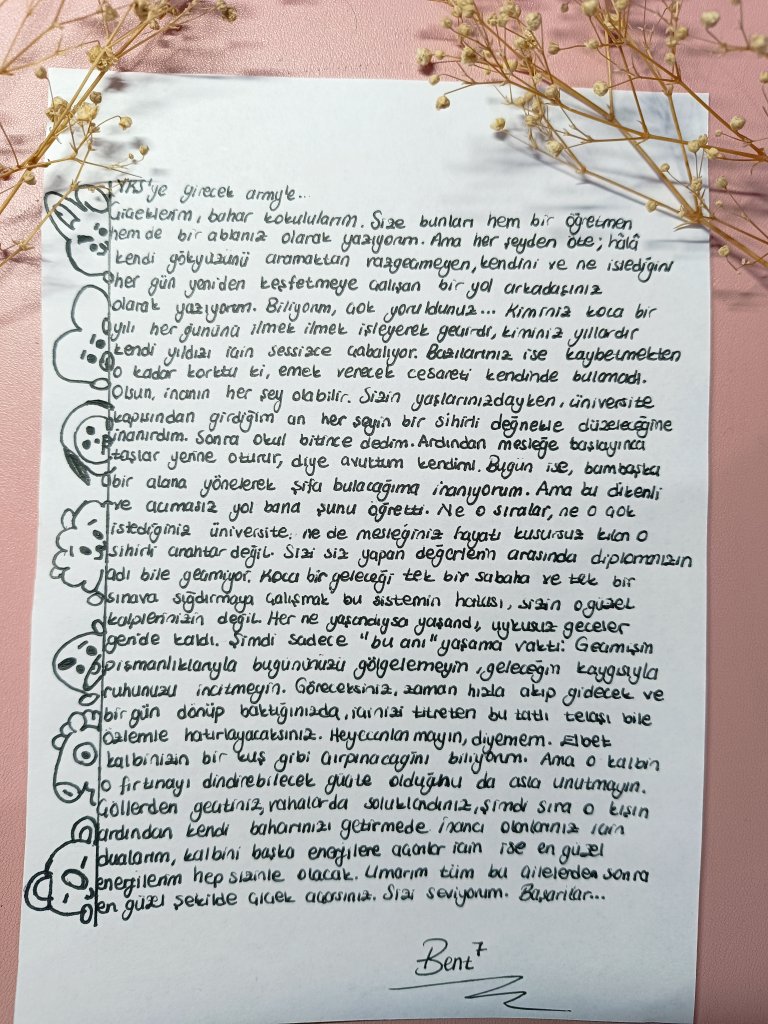 YKS'ye girecek army'e...
Çiçeklerim, bahar kokulularım. Size bunları hem bir öğretmen
hem de bir ablanız olarak yazıyorum. Ama her şeyden öte; hâlâ
kendi gökyüzünü aramaktan vazgeçmeyen, kendini ve ne istediğini
her gün yeniden keşfetmeye çalışan bir yol arkadaşınız
olarak yazıyorum. Biliyorum, çok yoruldunuz... Kiminiz koca bir
yılı her gününü ilmek ilmek işleyerek geçirdi, kiminiz yıllardır
kendi yıldızı için sessizce çabalıyor. Bazılarınız ise kaybetmekten
o kadar korktu ki, emek verecek cesareti kendinde bulamadı.
Olsun, inanın her şey olabilir. Sizin yaşlarınızdayken, üniversite
kapısından girdiğim an her şeyin bir sihirli değnekle düzeleceğine
inanırdım. Sonra okul bitince dedim. Ardından mesleğe başlayınca
taşlar yerine oturur, diye avuttum kendimi. Bugün ise, bambaşka
bir alana yönelerek şifa bulacağıma inanıyorum. Ama bu dikenli
ve acımasız yol bana şunu öğretti. Ne o sıralar, ne o çok
istediğiniz üniversite, ne de mesleğiniz hayatı kusursuz kılan o
sihirli anahtar değil. Sizi siz yapan değerlerin arasında diplomanızın
adı bile geçmiyor. Koca bir geleceği tek bir sabaha ve tek bir
sınava sığdırmaya çalışmak bu sistemin hatası, sizin o güzel
kalplerinizin değil. Her ne yaşandıysa yaşandı, uykusuz geceler
geride kaldı. Şimdi sadece "bu anı" yaşama vakti. Geçmişin
pişmanlıklarıyla bugününüzü gölgelemeyin, geleceğin kaygısıyla
ruhunuzu incitmeyin. Göreceksiniz, zaman hızla akıp gidecek ve
bir gün dönüp baktığınızda, içinizi titreten bu tatlı telaşı bile
özlemle hatırlayacaksınız. Heyecanlanmayın, diyemem. Elbet
kalbinizin bir kuş gibi çırpınacağını biliyorum. Ama o kalbin
o fırtınayı dindirebilecek güçte olduğunu da asla unutmayın.
Çöllerden geçtiniz, vahalarda soluklandınız, şimdi sıra o kışın
ardından kendi baharınızı getirmede. İnancı olanlarınız için
dualarım, kalbini başka enerjilere açanlar için ise en güzel
enerjilerim hep sizinle olacak. Umarım tüm bu çilelerden sonra
en güzel şekilde çiçek açarsınız. Sizi seviyorum. Başarılar...
Bent 7